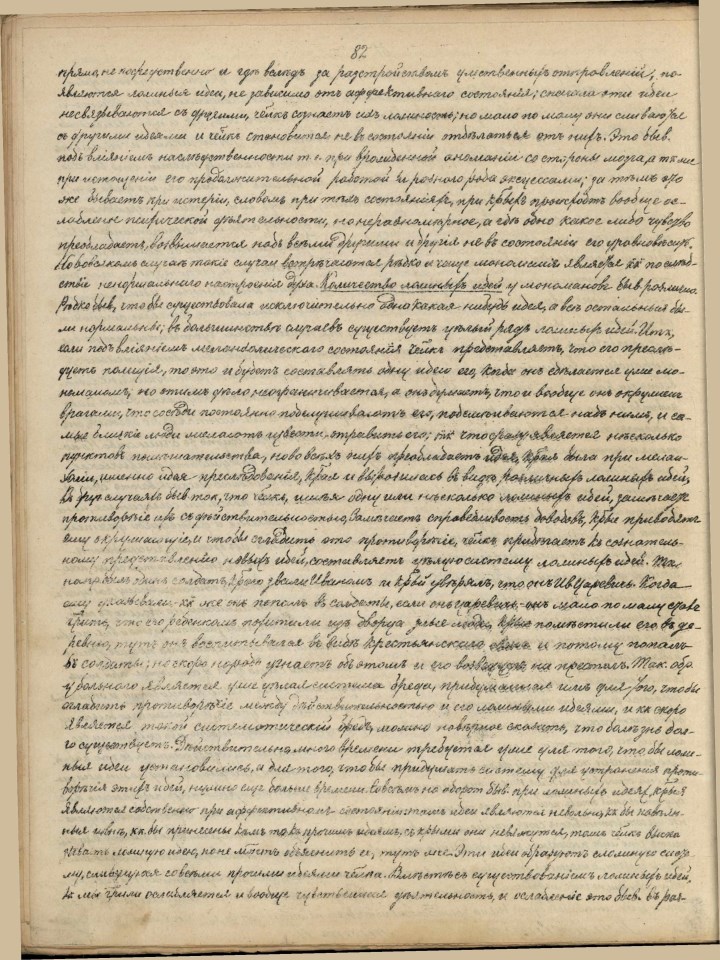 82
прямо, непосредственно и где вследъ за разстройствомъ умственныхъ отправленій, по-
являются ложныя идеи, не зависимо отъ аффективнаго состоянія; сначала эти идеи
несвязываются съ другими, чел͠къ сознаетъ ихъ ложность; но мало по малу они сливаются
съ другими идеями и чел͠къ становится не въ состояніи отдѣлаться отъ нихъ. Это быв.
подъ вліяніемъ наслѣдственности т. е. при врожденной аномаліи со стороны мозга, а также
при истощеніи его продолжительной работой и разнаго рода эксцессами; за тѣмъ это
же бываетъ при истеріи, словомъ при тѣхъ состояніяхъ, при кр͠хъ происходитъ вообще ос-
лабленіе психической дѣятельности, но неравномѣрное, а гдѣ одно какое либо чувство
преобладаетъ, возвышается надъ всѣми другими и другія не въ состояніи его уравновѣсить.
Но вовсякомъ случаѣ такіе случаи встрѣчаются рѣдко и чаще мономанія является кк͠ послѣд-
ствіе ненормальнаго настроенія духа. Количество ложныхъ идей у мономановъ быв. различно.
Рѣдко быв., чтобы существовала исключительно одна какая нибудь идея, а всѣ остальныя бы-
ли нормальны; въ большинствѣ случаевъ существуетъ цѣлый рядъ ложныхъ идей. Иткъ,
если подъ вліяніемъ меланхолическаго состоянія чел͠къ представляетъ, что его преслѣ-
дуетъ полиція, то это и будетъ составлять одну идею его, когда онъ сдѣлается уже мо-
номаномъ, но этимъ дѣло неограничивается, а онъ думаетъ, что и вообще онъ окруженъ
врагами, что сосѣди постоянно подслушиваютъ его, подсмѣиваются надъ нимъ, и са-
мые близкіе люди желаютъ извести, отравить его; тк͠ что сразу является нѣсколько
пунктовъ помѣшательства, но во всѣхъ нихъ преобладаетъ идея, кр͠ая была при мелан-
холіи, именно идея преслѣдованія, кр͠ая и выразилась въ видѣ различныхъ ложныхъ идей.
Въ друг. случаяхъ быв. так, что чел͠къ, имѣя одну или нѣсколько ложныхъ идей, замѣчаетъ
противорѣчіе ихъ съ дѣйствительностью, замѣчаетъ справедливость доводовъ, кр͠ые приводятъ
ему окружающіе, и чтобы сгладить это противорѣчіе, чел͠къ прибѣгаетъ къ сознатель-
ному представленію новыхъ идей, составляетъ цѣлую систему ложныхъ идей. Такъ
напримѣръ одинъ солдатъ, кр͠аго звали Иваномъ и кр͠ый увѣрялъ, что онъ Ив. Царевичъ. Когда
ему указывали кк͠ же онъ попалъ въ солдаты, если онъ царевичъ, онъ мало по малу сталъ
говорить, что его ребенкомъ похитили изъ дворца злые люди, кр͠ые помѣстили его въ де-
ревню, тутъ онъ воспитывался въ видѣ крестьянскаго сына и потому попалъ
въ солдаты; но скоро народъ узнаетъ объ этомъ и его возведутъ на престолъ. Так. обр.
у больного является уже цѣлая система бреда, придуманная имъ для того, чтобы
сгладить противорѣчіе между дѣйствительностью и его ложными идеями, и кк͠ скоро
является такой систематическій бредъ, можно навѣрное сказать, что болѣзнь дол-
го существуетъ. Дѣйствительно, много времени требуется уже для того, чтобы лож-
ныя идеи установились, а для того, чтобы придумать систему для устраненія проти-
ворѣчія этихъ идей, нужно еще больше времени. Совсѣмъ на оборотъ быв. при ложныхъ идеяхъ, кр͠ыя
являются собственно при аффективномъ состояніи: тамъ идеи являются невольно, кк͠ бы навязан-
ныя извнѣ, кк͠ бы принесены къ тѣмъ прочимъ идеямъ, съ кр͠ыми они невяжутся, тамъ чел͠къ выска-
зываетъ ложную идею, но не мож͠етъ объяснить ее, тутъ же эти идеи образуютъ сложную систе-
му, слившуюся со всѣми прочими идеями чел͠ка. Вмѣстѣ съ существованіемъ ложныхъ идей,
ослабляется и вообще чувственная дѣятельность, и ослабленіе это быв. въ раз-